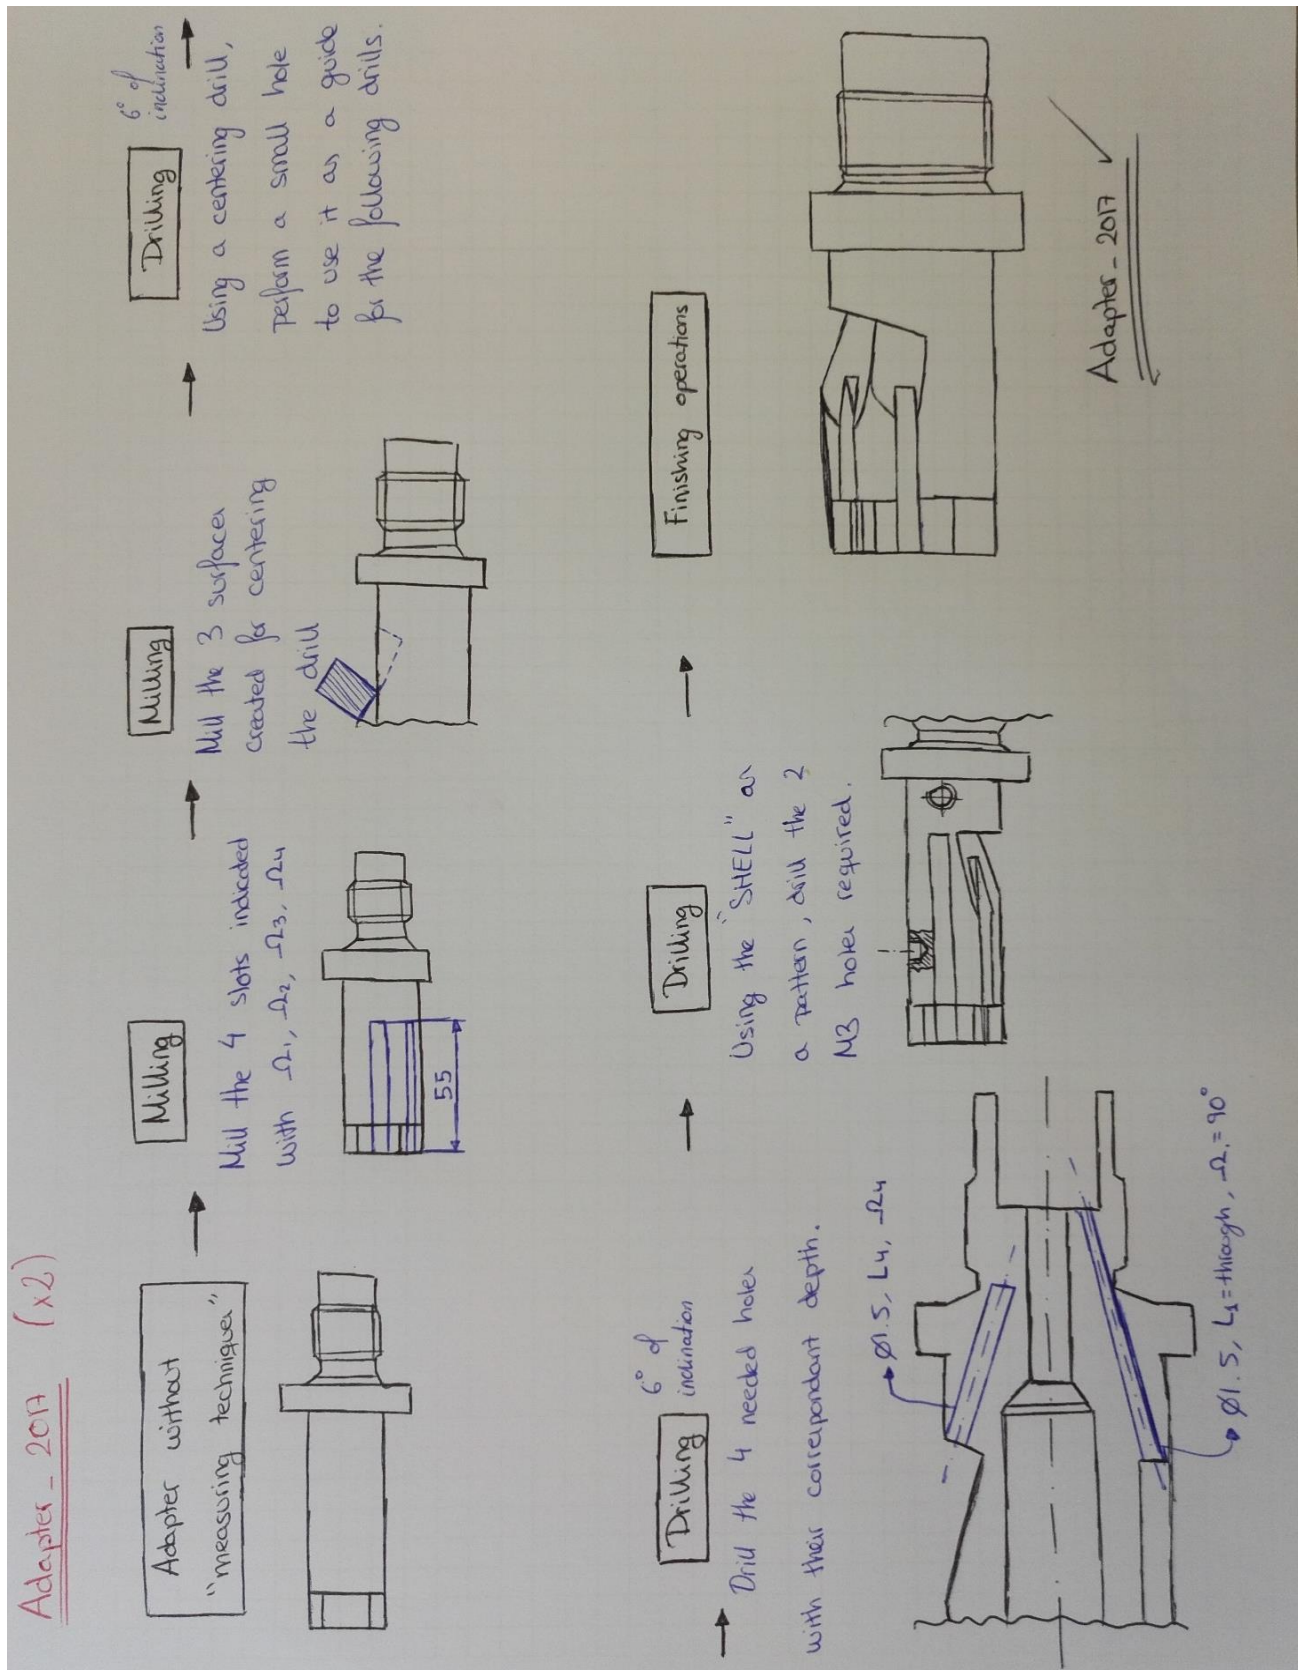 Adapter_2017 (x2)
Adapter without
"measuring technique"
Milling
Mill the 4 slots indicated
with Ω1, Ω2, Ω3, Ω4
55
Milling
Mill the 3 surfaces
created for centering
the drill
Drilling
6° of
inclination
Using a centering drill,
perform a small hole
to use it as a guide
for the following drills.
Drilling
6° of
inclination
Drill the 4 needed holes
with their correspondant depth.
Ø1.5, L4, Ω4
Ø1.5, L1=through, Ω1=90°
Drilling
Using the "SHELL" as
a pattern, drill the 2
M3 holes required.
Finishing operations
Adapter_2017